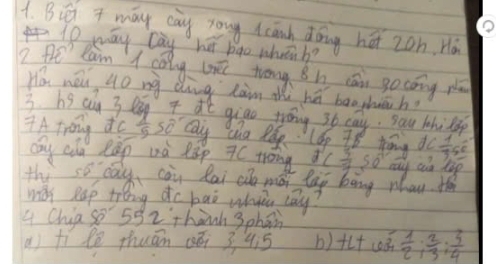 1. Biết 7 máy cày xong 1 cánh đồng hết 20h. Hỏi
10 máy cày hết bao nhiêu h?
2. Để làm 1 công việc trong 8h cần 30 công nhân
Hỏi nếu 40 ng cùng làm thì hết bao nhiêu h?
3. hs của 3 lớp 7 đc giao trồng 36 cây. Sau khi lớp
7A trồng đc số cây của lớp. Lớp 7B trồng đc số
cây của lớp và lớp 7C trồng đc số cây của lớp
thì số cây còn lại của mỗi lớp bằng nhau. Hỏi
mỗi lớp trồng đc bao nhiêu cây?
4. Chia số 552 thành 3 phần
a) tỉ lệ thuận với 3, 4, 5 b) tlt với 1/2; 2/3; 3/4